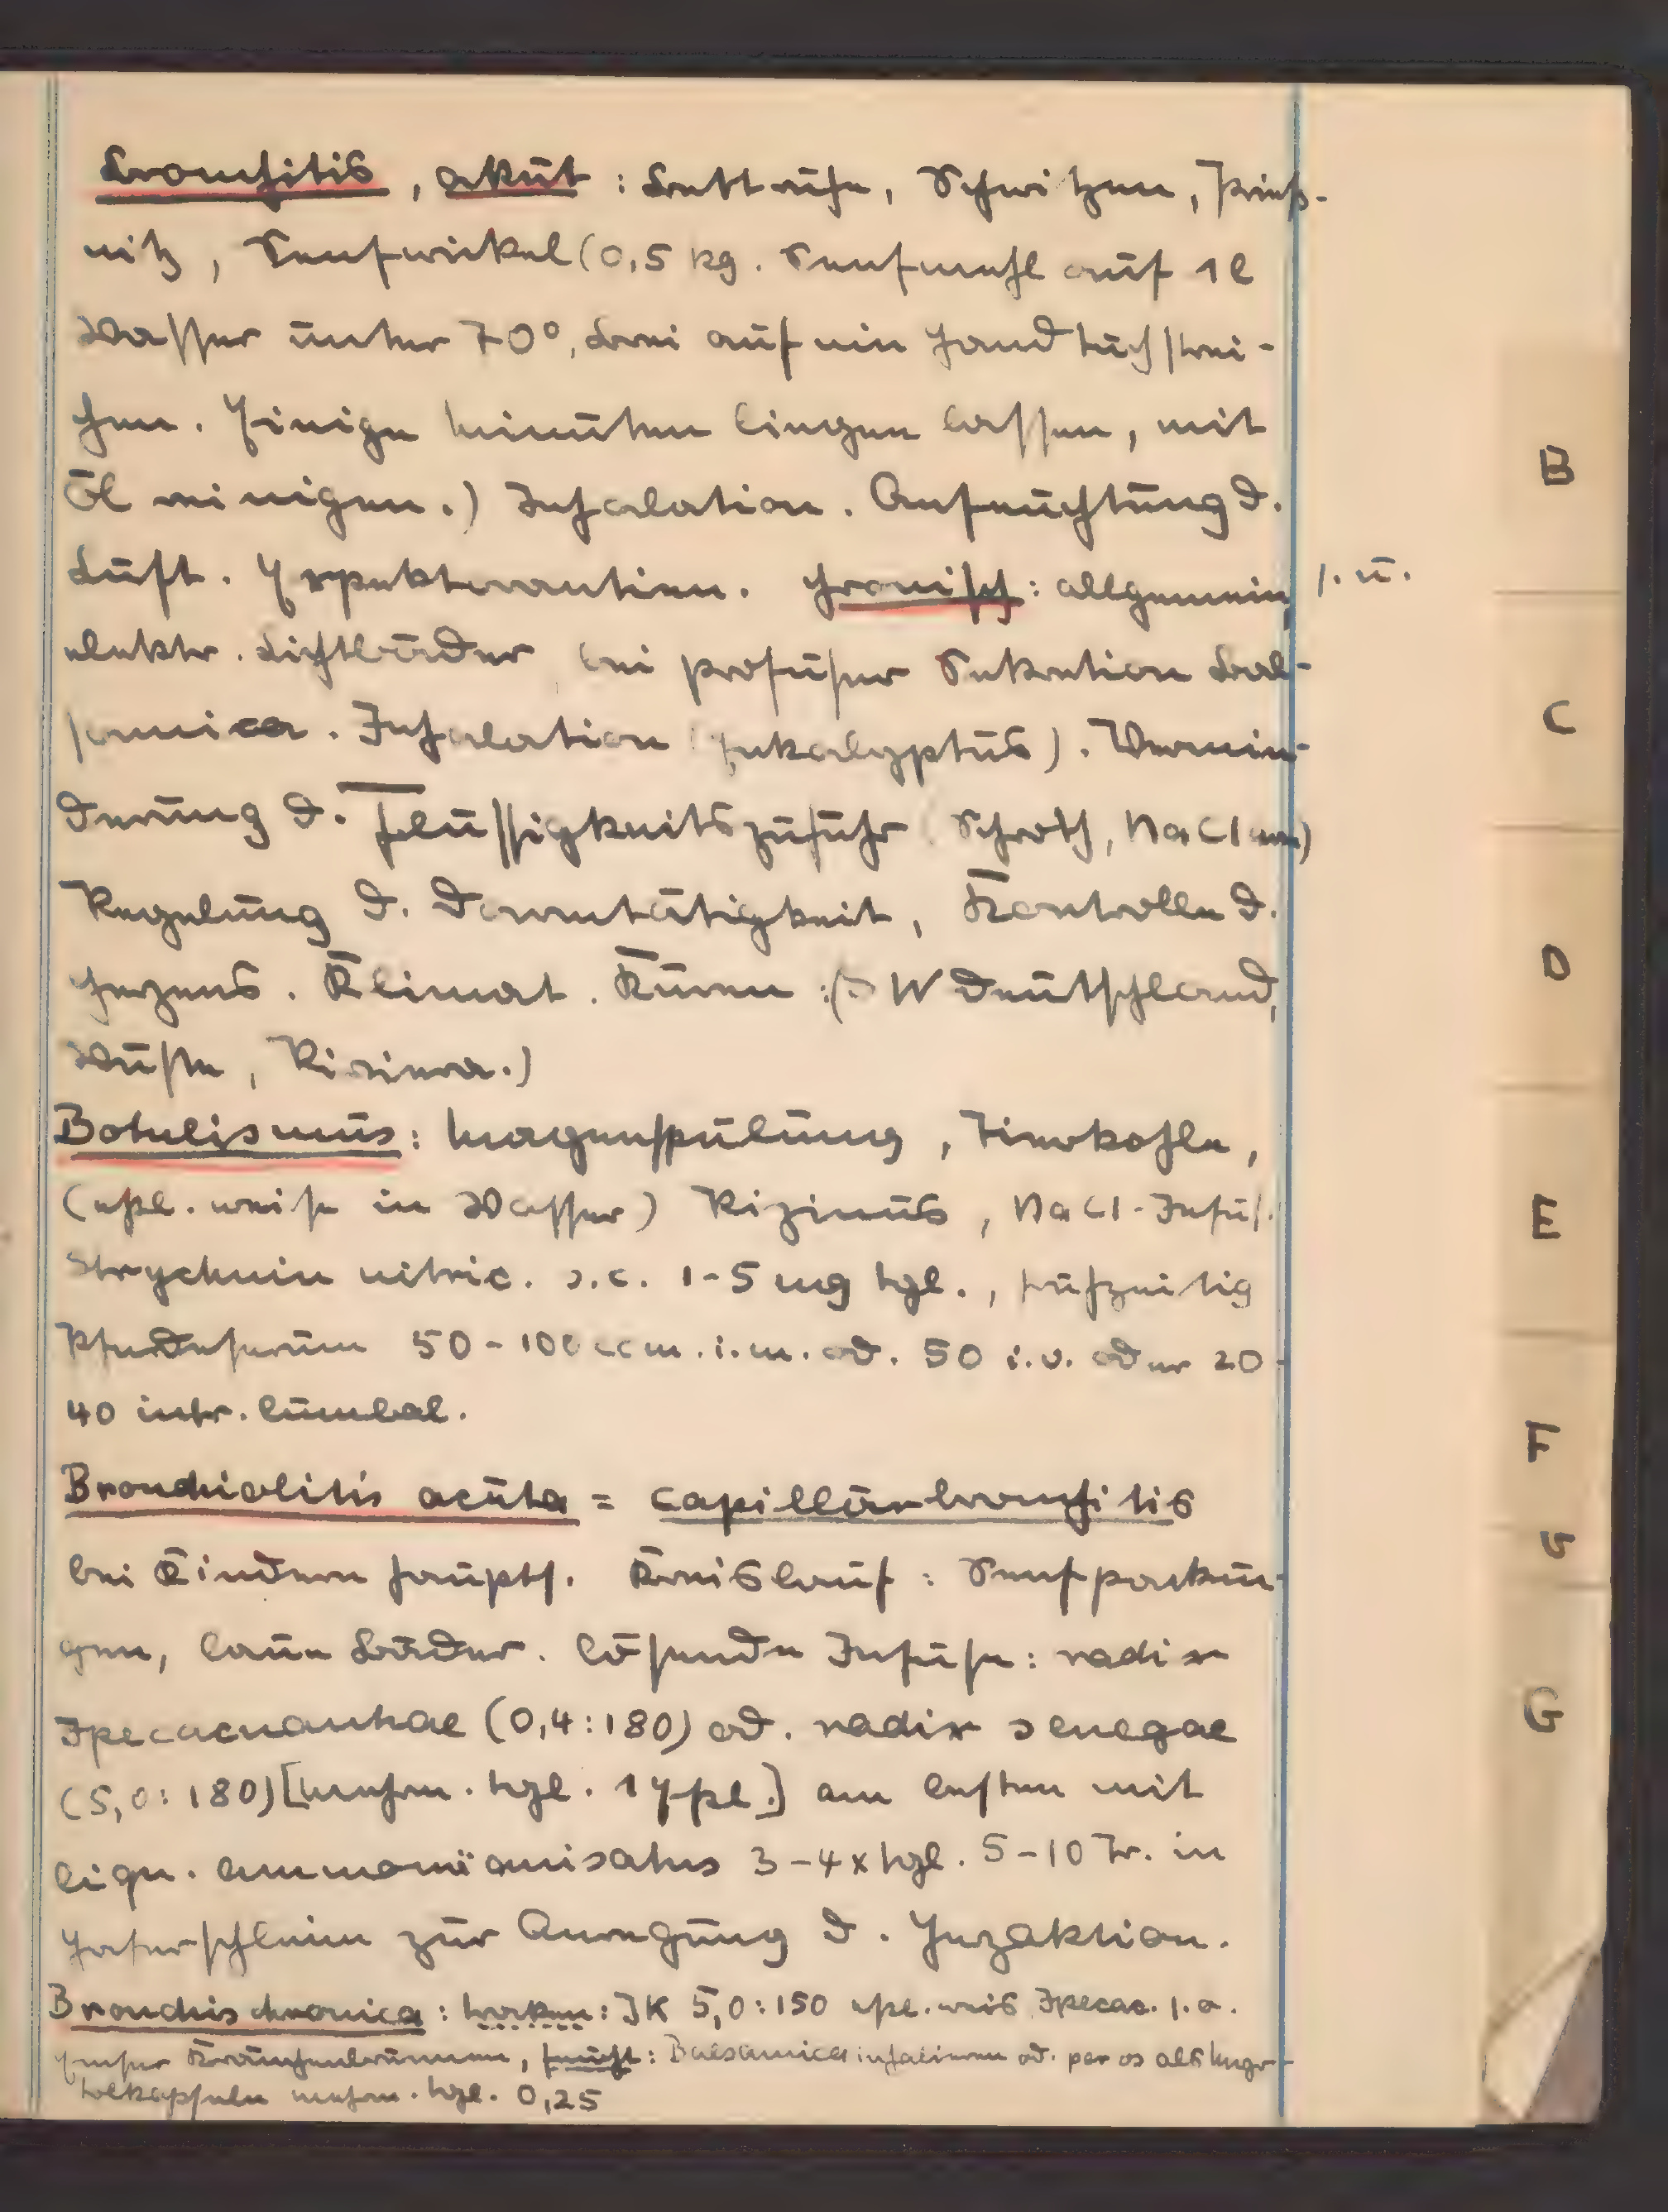 Bronchitis, akut: Bettruhe, Schwitzen, Prieß-
nitz, Senfwickel (0,5 kg. Senfmehl auf 1 l
Wasser unter 70°, Brei auf ein Handtuch strei-
chen. Einige Minuten liegen lassen, mit
Öl reinigen.) Inhalation. Anfeuchtung d.
Luft. Expektorantien. Chronisch: allgemein, s. u.
elektr. Lichtbäder bei profuser Sekretion Bal-
samica. Inhalation (Eukalyptus). Vermin-
derung d. Flüssigkeitszufuhr (Schroth, NaCl arm)
Regelung d. Darmtätigkeit, Kontrolle d.
Herzens. Klimat. Kuren: (SW Deutschland,
Wüste, Riviera.)
Botulismus: Magenspülung, Tierkohle,
(eßl. weise in Wasser) Rizinus, NaCl-Infus.
Strychnin nitric. s.c. 1-5 mg tgl., frühzeitig
Pferdeserum 50-100 ccm. i.m. od. 50 i.v. oder 20-
40 intr. lumbal.
Bronchiolitis acuta = Capillärbronchitis
bei Kindern haupts. Kreislauf: Senfpackun-
gen, laue Bäder. Lösende Infuse: radix
Ipecacuanhae (0,4:180) od. radix senegae
(5,0:180) [mehrm. tgl. 1 Eßl.] am besten mit
liqu. ammonii anisatus 3-4 x tgl. 5-10 Tr. in
Haferschleim zur Anregung d. Herzaktion.
Bronchis chronica: trocken: JK 5,0:150 eßl. weis Ipecac. s. o.
Emser Kränchenbrunnen, feucht: Balsamica inhalieren od. per os als Myr-
tolkapseln mehrm. tgl. 0,25
B
C
D
E
F
G
G